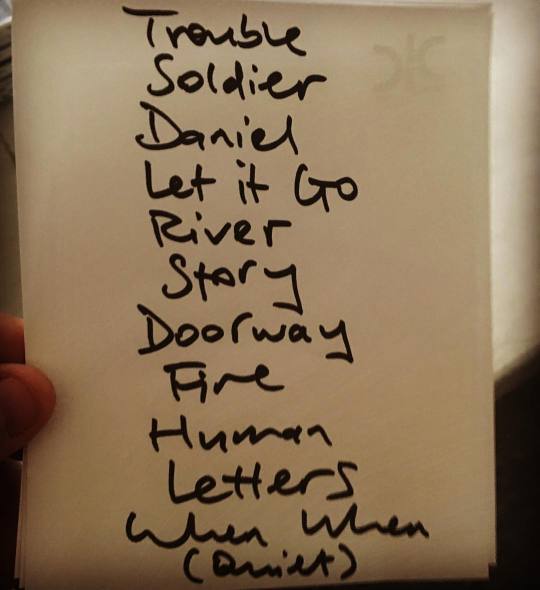 Trouble
Soldier
Daniel
Let it Go
River
Story
Doorway
Fire
Human
Letters
When When
(Quiet)